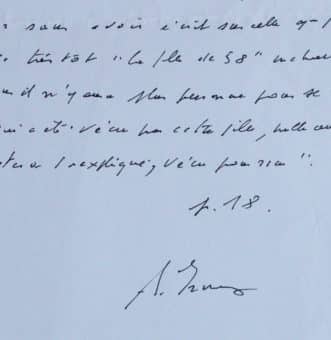 sans avoir écrit sur celle q
très tôt "la fille de 58" me
il n'y aura plus personne pour se
qui a été vécu par cette fille, nulle au
inexpliqué, vécu pour rien".
p. 18.
A. Ernaux